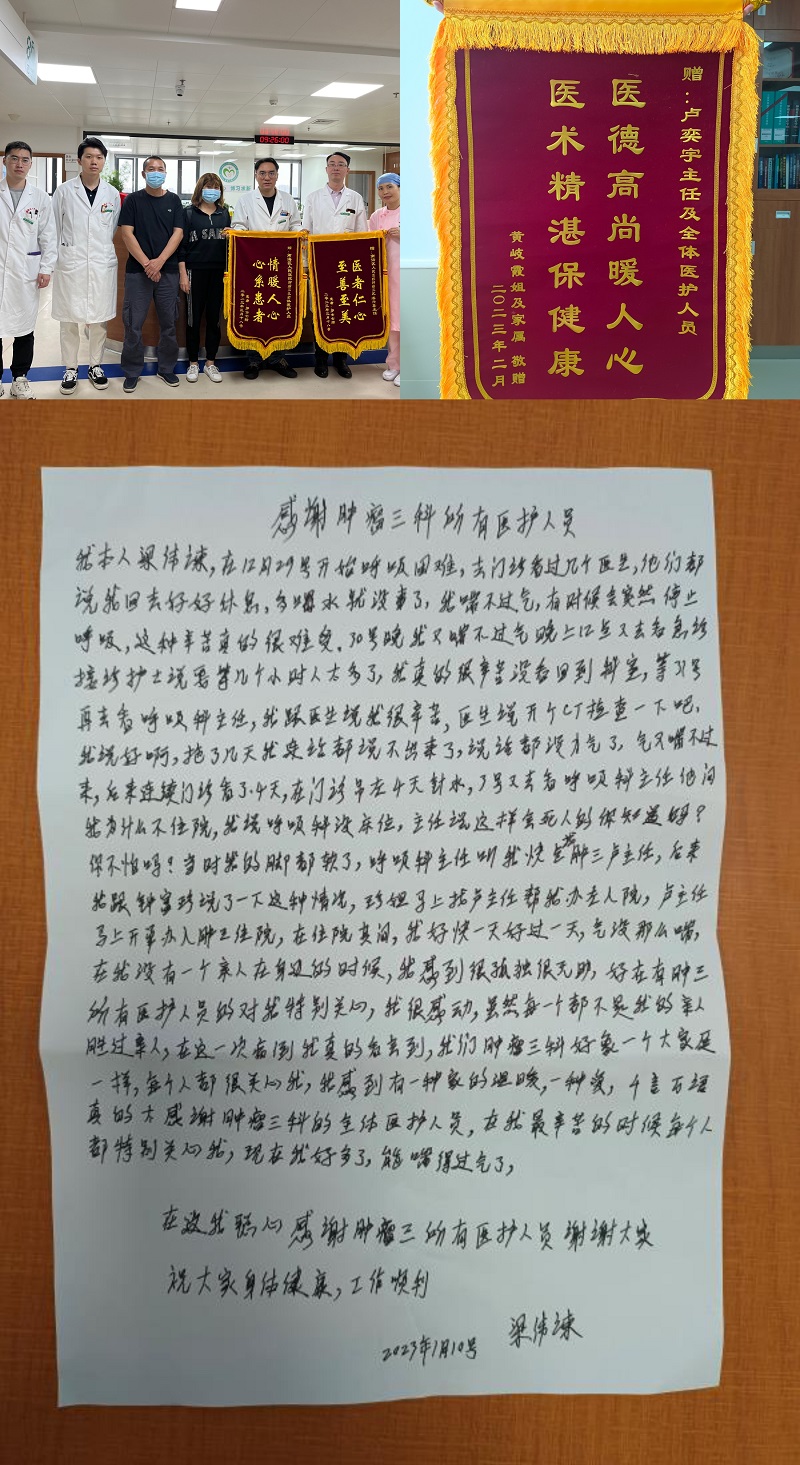 09:26:00
情暖人心
心系患者
医者仁心
至善至美
赠：卢奕宇主任及全体医护人员
医德高尚暖人心
医术精湛保健康
黄岐霞姐及家属 敬赠
二〇二三年二月
感谢肿瘤三科所有医护人员
我本人梁伟谏，在12月29号开始呼吸困难，去门诊看过几个医生，他们都
说我回去好好休息，多喝水就没事了，我喘不过气，有时候会突然停止
呼吸，这种辛苦真的很难受，30号晚我又喘不过气晚上12点又去看急诊
接诊护士说要等几个小时人太多了，我真的很辛苦没看回到科室，等31号
再去看呼吸科主任，我跟医生说我很辛苦，医生说开个CT检查一下吧，
我说好啊，拖了几天我连话都说不出来了，说话都没力气了，气又喘不过
来，后来连续门诊看了4天，在门诊吊左4天针水，3号又去看呼吸科主任他问
我为什么不住院，我说呼吸科没床位，主任说这样会死人的你知道吗？
你不怕吗？当时我的脚都软了，呼吸科主任叫我快去找肿三卢主任，后来
我跟钟富珍说了一下这种情况，珍姐马上找卢主任帮我办左入院，卢主任
马上开单办入肿三住院，在住院其间，我好快一天好过一天，气没那么喘，
在我没有一个亲人在身边的时候，我感到很孤独很无助，好在有肿三
所有医护人员的对我特别关心，我很感动，虽然每一个都不是我的亲人
胜过亲人，在这一次病倒我真的看去到，我们肿瘤三科好象一个大家庭
一样，每个人都很关心我，我感到有一种家的温暖，一种爱，千言万语
真的太感谢肿瘤三科的全体医护人员，在我最辛苦的时候每个人
都特别关心我，现在我好多了，能喘得过气了，
在这我衷心感谢肿瘤三所有医护人员谢谢大家
祝大家身体健康，工作顺利
梁伟谏
2023年1月10号